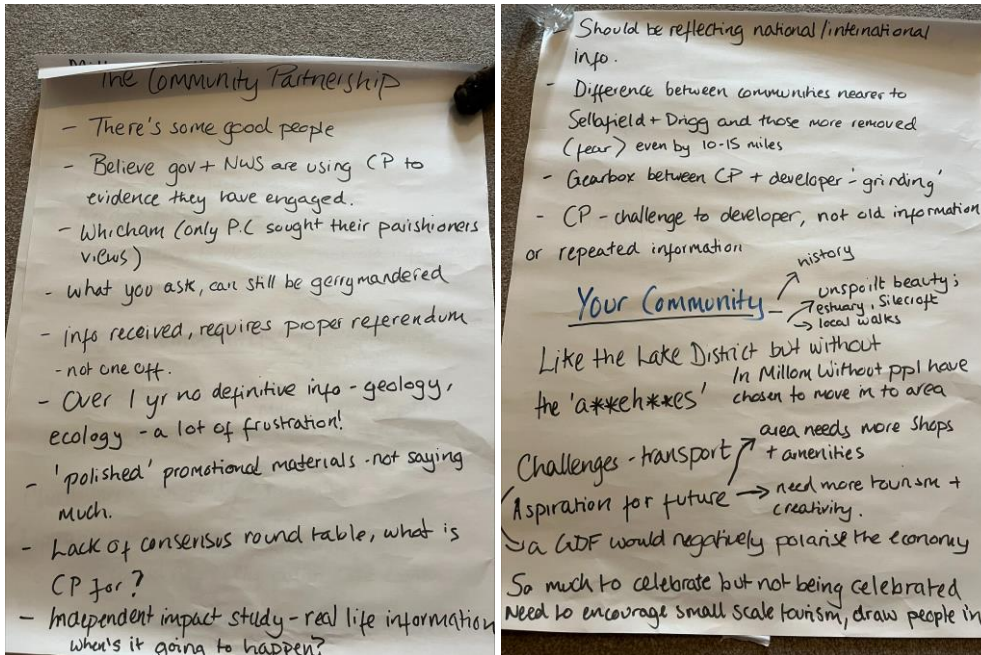 The Community Partnership
- There's some good people
- Believe gov + NWS are using CP to
evidence they have engaged.
- Whicham (only P.C sought their parishioners
views)
- what you ask, can still be gerrymandered
- info received, requires proper referendum
- not one off.
- Over 1 yr no definitive info - geology,
ecology - a lot of frustration!
- 'polished' promotional materials - not saying
much.
- Lack of consensus round table, what is
CP for?
- Independent impact study - real life information
when's it going to happen?
- Should be reflecting national/international
info.
- Difference between communities nearer to
Sellafield + Drigg and those more removed
(fear) even by 10-15 miles
- Gearbox between CP + developer - 'grinding'
- CP - challenge to developer, not old information
or repeated information
Your Community -
history
unspoilt beauty;
estuary, Silecroft
local walks
Like the Lake District but without
the 'a**eh**es'
In Millom Without ppl have
chosen to move in to area
Challenges - transport
area needs more shops
+ amenities
Aspiration for future
need more tourism +
creativity.
a GDF would negatively polarise the economy
So much to celebrate but not being celebrated
Need to encourage small scale tourism, draw people in